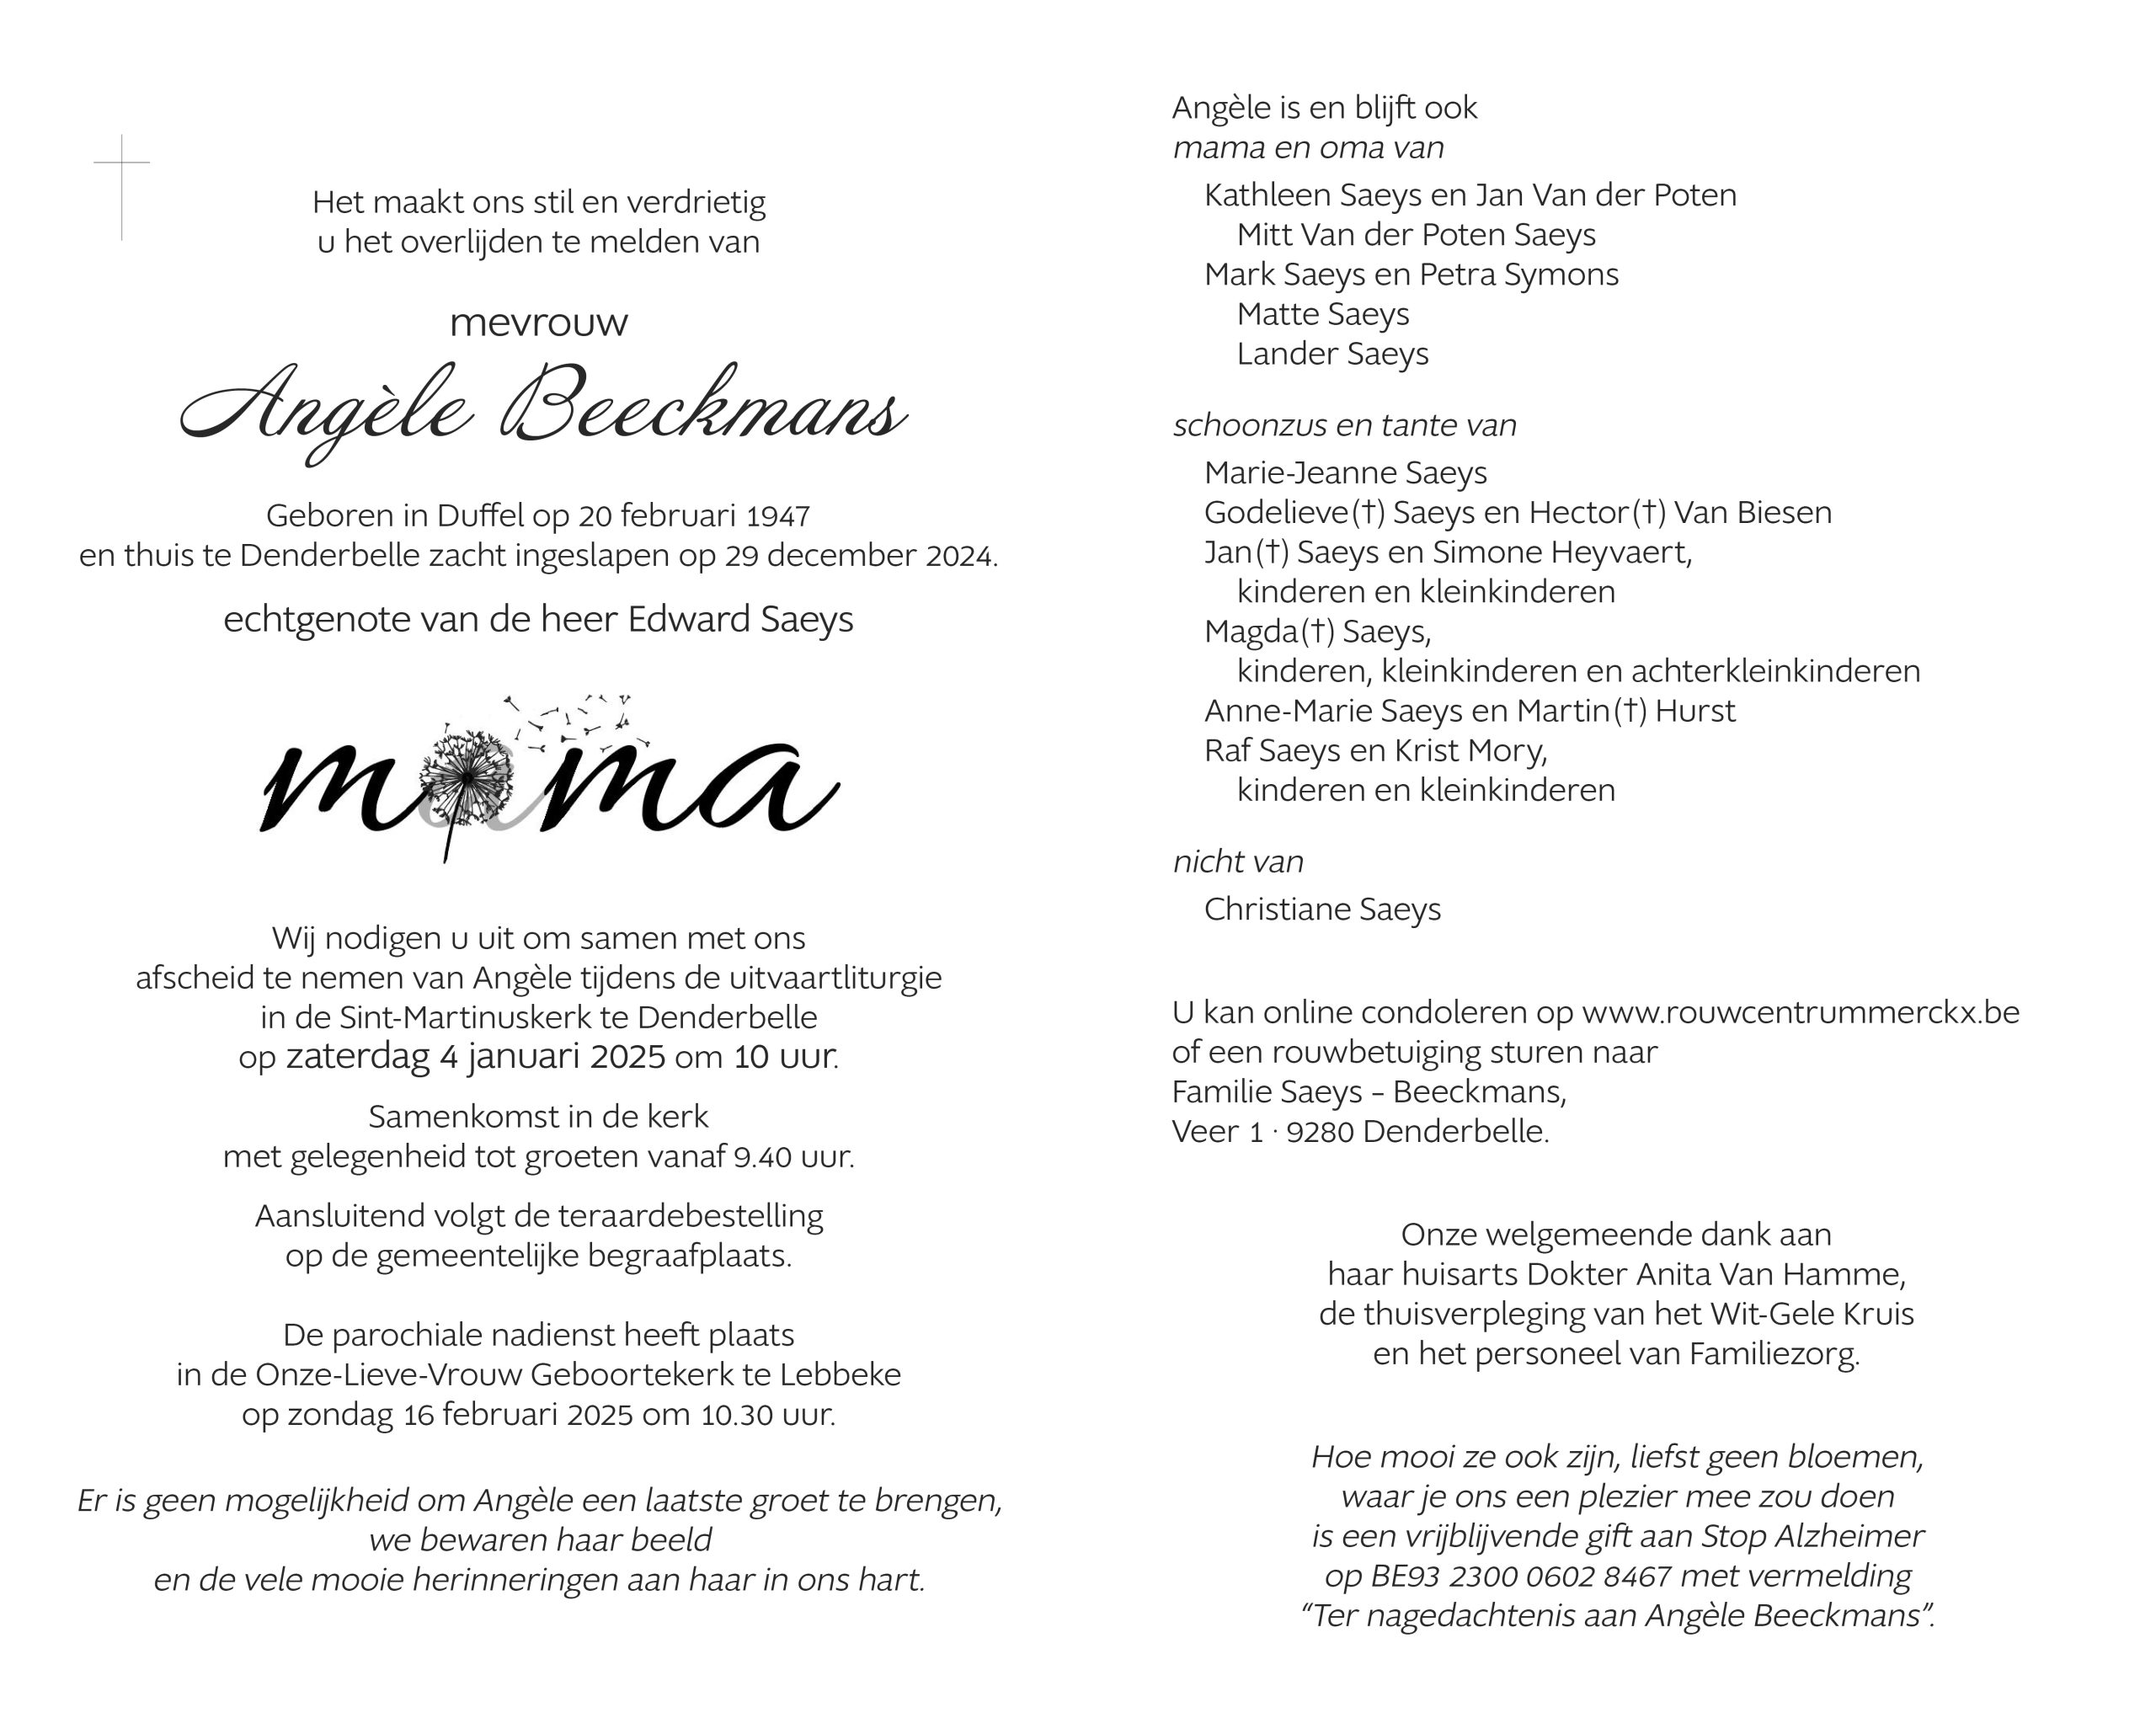 Het maakt ons stil en verdrietig
u het overlijden te melden van
mevrouw
Angèle Beeckmans
Geboren in Duffel op 20 februari 1947
en thuis te Denderbelle zacht ingeslapen op 29 december 2024.
echtgenote van de heer Edward Saeys
mama
Wij nodigen u uit om samen met ons
afscheid te nemen van Angèle tijdens de uitvaartliturgie
in de Sint-Martinuskerk te Denderbelle
op zaterdag 4 januari 2025 om 10 uur.
Samenkomst in de kerk
met gelegenheid tot groeten vanaf 9.40 uur.
Aansluitend volgt de teraardebestelling
op de gemeentelijke begraafplaats.
De parochiale nadienst heeft plaats
in de Onze-Lieve-Vrouw Geboortekerk te Lebbeke
op zondag 16 februari 2025 om 10.30 uur.
Er is geen mogelijkheid om Angèle een laatste groet te brengen,
we bewaren haar beeld
en de vele mooie herinneringen aan haar in ons hart.
Angèle is en blijft ook
mama en oma van
Kathleen Saeys en Jan Van der Poten
Mitt Van der Poten Saeys
Mark Saeys en Petra Symons
Matte Saeys
Lander Saeys
schoonzus en tante van
Marie-Jeanne Saeys
Godelieve(†) Saeys en Hector(†) Van Biesen
Jan(†) Saeys en Simone Heyvaert,
kinderen en kleinkinderen
Magda(†) Saeys,
kinderen, kleinkinderen en achterkleinkinderen
Anne-Marie Saeys en Martin(†) Hurst
Raf Saeys en Krist Mory,
kinderen en kleinkinderen
nicht van
Christiane Saeys
U kan online condoleren op www.rouwcentrummerckx.be
of een rouwbetuiging sturen naar
Familie Saeys – Beeckmans,
Veer 1 · 9280 Denderbelle.
Onze welgemeende dank aan
haar huisarts Dokter Anita Van Hamme,
de thuisverpleging van het Wit-Gele Kruis
en het personeel van Familiezorg.
Hoe mooi ze ook zijn, liefst geen bloemen,
waar je ons een plezier mee zou doen
is een vrijblijvende gift aan Stop Alzheimer
op BE93 2300 0602 8467 met vermelding
“Ter nagedachtenis aan Angèle Beeckmans”.